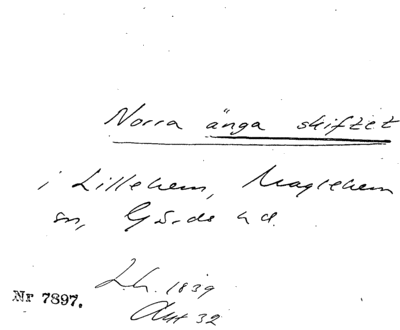 Norra änga skiftet
i Lillehem, Maglehem
sn, Gärds hd.
L.h. 1839
Nr 7897.
Akt 32